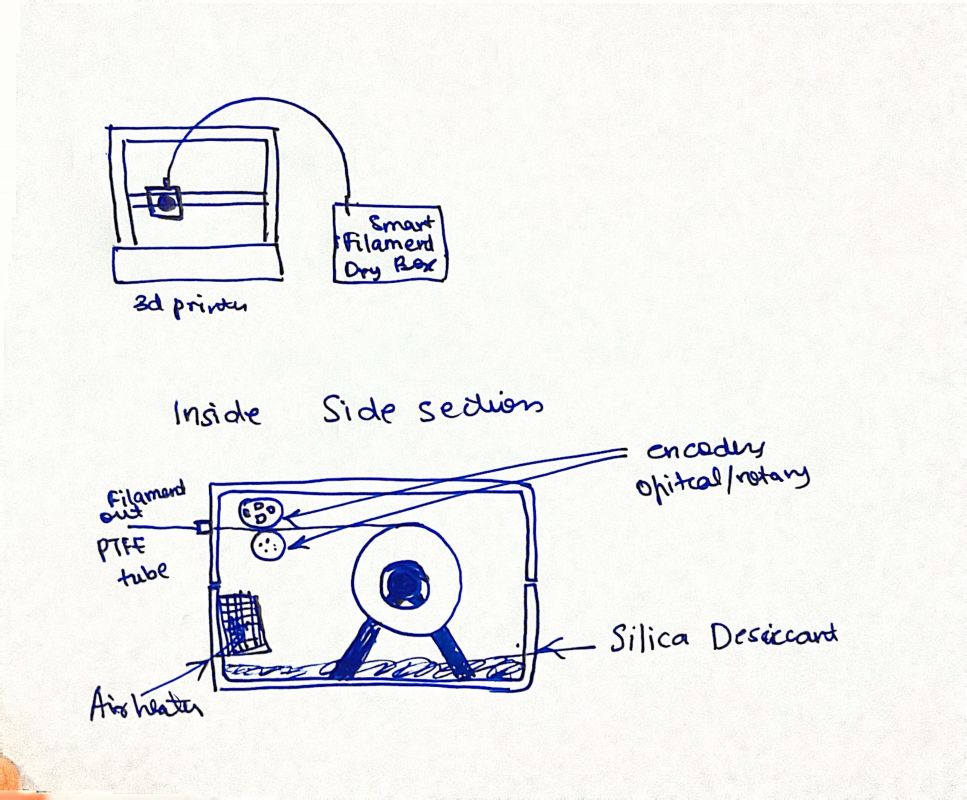 Smart
Filament
Dry Box
3d printer
Inside Side section
encoders
opitcal/rotary
Filament
out
PTFE
tube
Silica Desiccant
Air heater